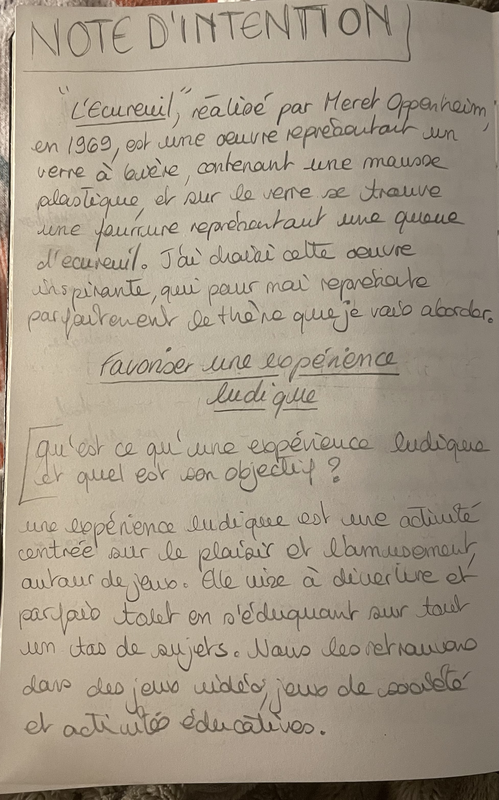 NOTE D'INTENTION
"L'Ecureuil", réalisé par Meret Oppenheim
en 1969, est une oeuvre représentant un
verre à bière, contenant une mousse
plastique, et sur le verre se trouve
une fourrure représentant une queue
d'écureuil. J'ai choisi cette oeuvre
inspirante, qui pour moi représente
parfaitement le thème que je vais aborder.
Favoriser une expérience
ludique
Qu'est ce qu'une expérience ludique
et quel est son objectif ?
une expérience ludique est une activité
centrée sur le plaisir et l'amusement,
autour de jeux. Elle vise à divertire et
parfois tout en s'éduquant sur tout
un tas de sujets. Nous les retrouvons
dans des jeux vidéo, jeux de société
et activités éducatives.